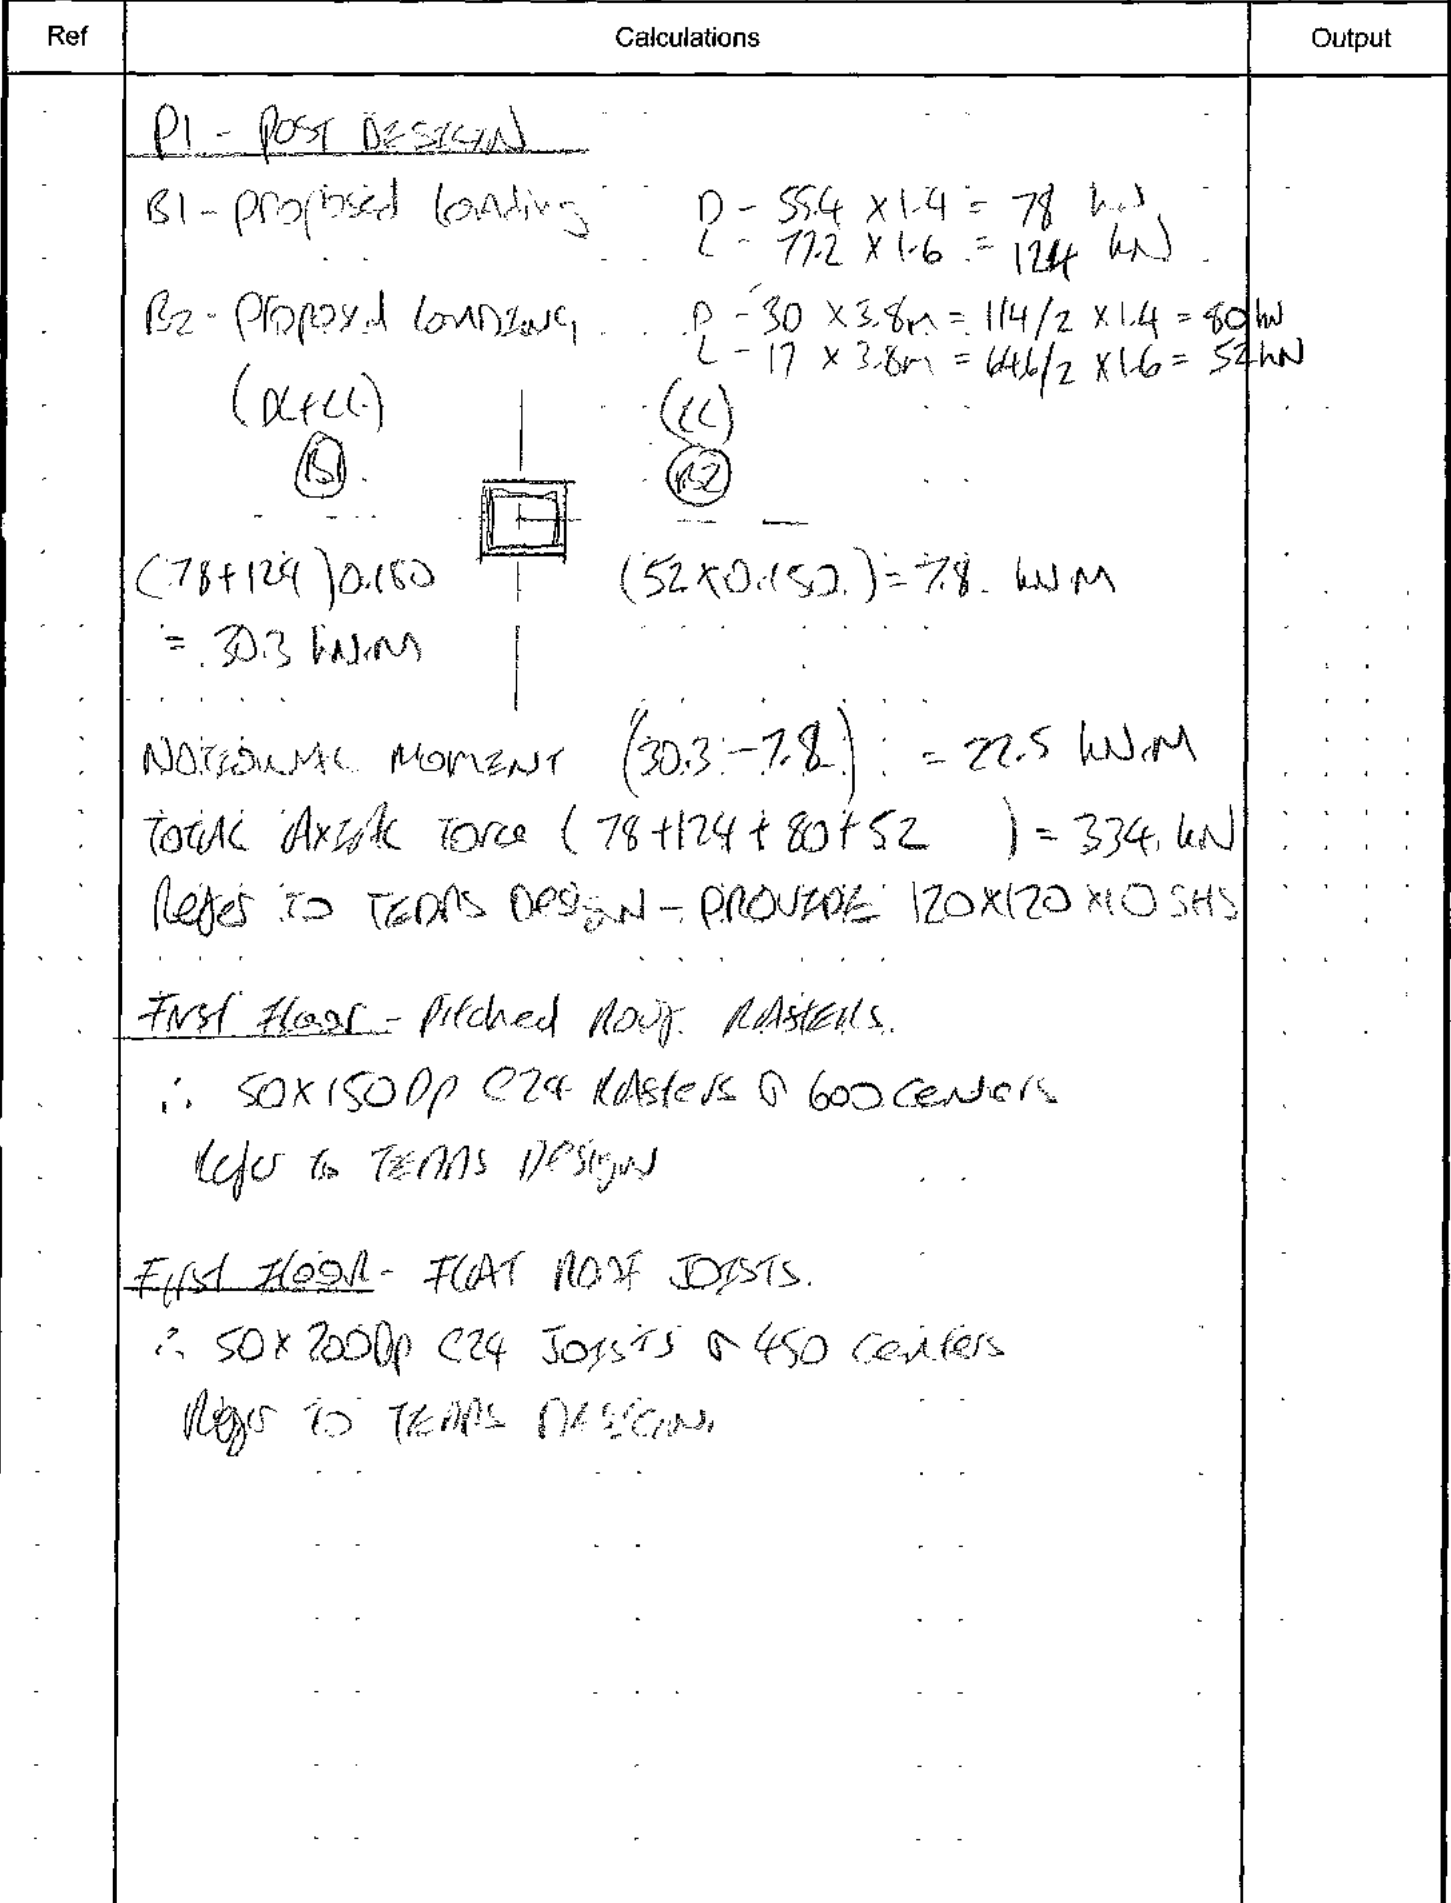 Ref Calculations Output
P1 - POST DESIGN
B1 - proposed loading D - 55.4 x 1.4 = 78 kN
L - 77.2 x 1.6 = 124 kN
B2 - Proposed LOADING D - 30 x 3.8m = 114/2 x 1.4 = 80 kN
L - 17 x 3.8m = 64.6/2 x 1.6 = 52 kN
(DL+LL) (LL)
B1 B2
(78+124)0.150 (52x0.150) = 7.8 kN.M
= 30.3 kN.M
NOTIONAL MOMENT (30.3 - 7.8) = 22.5 kN.M
TOTAL AXIAL Force (78+124+80+52) = 334 kN
Refer TO TEDDS DESIGN - PROVIDE 120x120x10 SHS
First Floor - Pitched Roof RAFTERS.
∴ 50x150Dp C24 RAFTERS @ 600 centers
Refer To TEDDS DESIGN
First FLOOR - FLAT ROOF JOISTS.
∴ 50x200Dp C24 JOISTS @ 450 centers
Refer TO TEDDS DESIGN